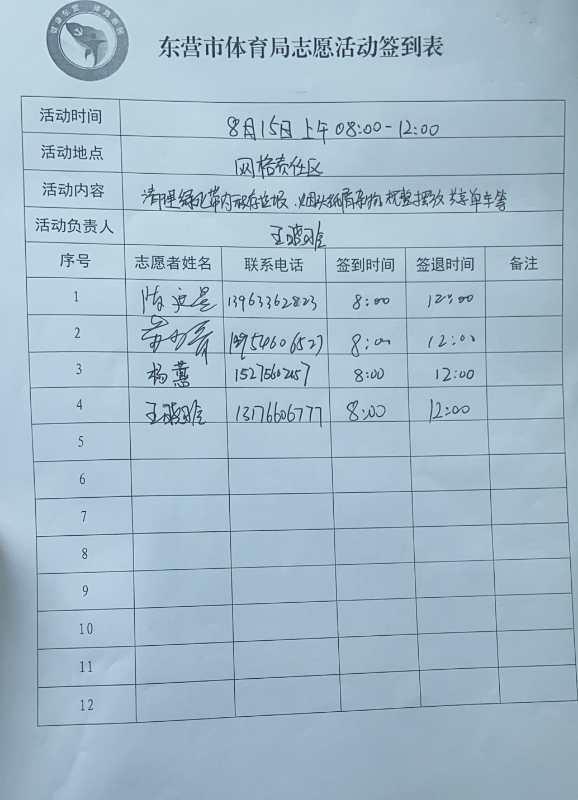 东营市体育局志愿活动签到表
活动时间 8月15日上午08:00-12:00
活动地点 网格责任区
活动内容 清理绿化带内 垃圾、烟头纸屑杂物 摆放共享单车等
活动负责人 王
序号 志愿者姓名 联系电话 签到时间 签退时间 备注
1 13963362823 8:00 12:00
2 8:00 12:00
3 杨蕙 8:00 12:00
4 王 13176606777 8:00 12:00
5
6
7
8
9
10
11
12